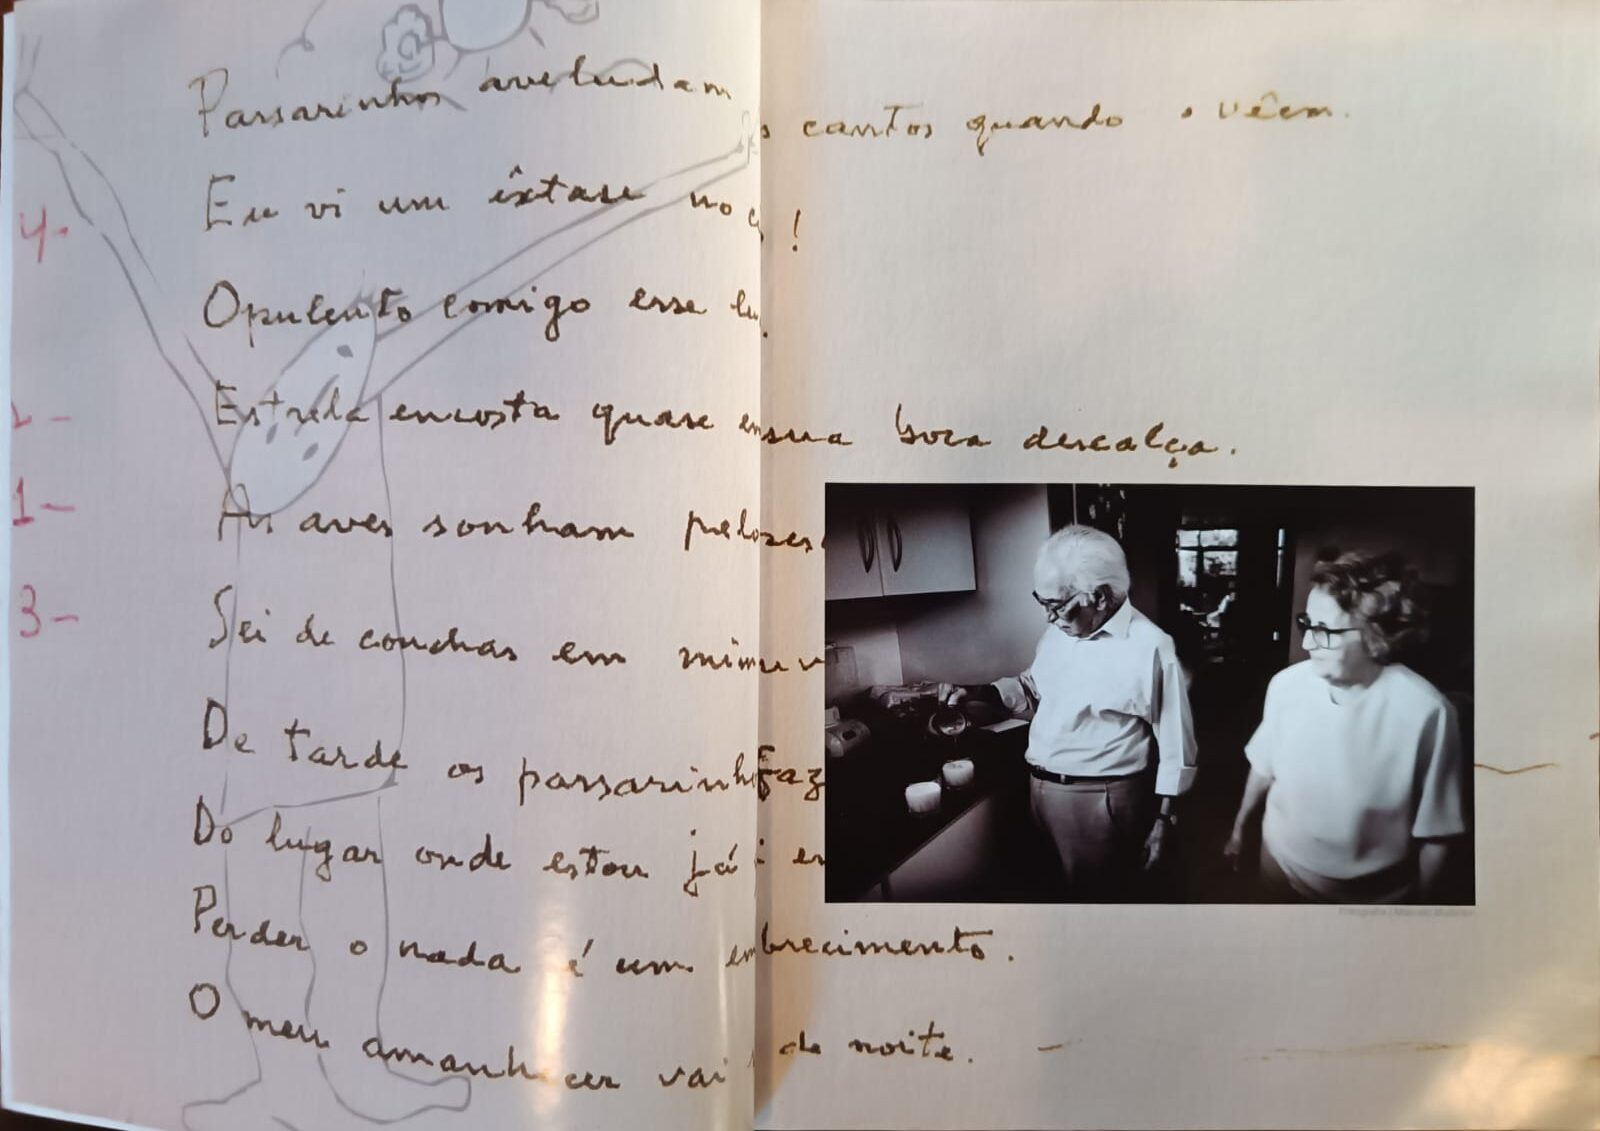 Passarinhos aveludam os cantos quando o vêem.
4- Eu vi um êxtase no c !
Opulento comigo esse lu.
Estrela encosta quase em sua boca descalça.
1- As aves sonham pelos
3- Sei de conchas em
De tarde os passarinhos faz
Do lugar onde estou já
Perder o nada é um em brecimento.
O meu amanhecer vai de noite.